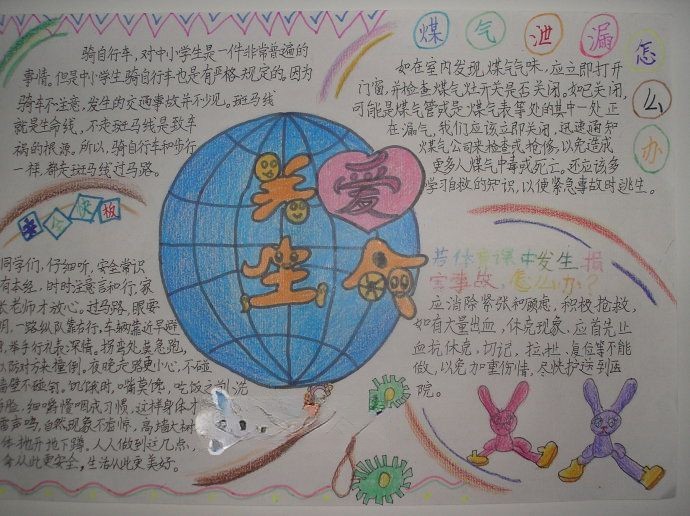 骑自行车，对中小学生是一件非常普遍的
事情。但是中小学生骑自行车也是有严格规定的。因为
骑车不注意，发生的交通事故并不少见。斑马线
就是生命线，不走斑马线是致车
祸的根源。所以，骑自行车和步行
一样，都走斑马线过马路。
煤气泄漏怎么办
如在室内发现，煤气气味，应立即打开
门窗，并检查煤气灶开关是否关闭。如已关闭，
可能是煤气管或是煤气表等处的其中一处正
在漏气，我们应该立即关闭，迅速通知
煤气公司来检查或抢修，以免造成
更多人煤气中毒或死亡。还应该多
学习自救的知识，以使紧急事故时逃生。
关爱
生命
板
同学们，仔细听，安全常识
有本经，时时注意言和行，家
长老师才放心。过马路，眼要
明，一路纵队靠右行，车辆靠近早避
，举手行礼表深情。拐弯处莫急跑，
以防对方未撞倒，夜晚走路更小心，不碰
墙壁不碰钉。饥饿时，嘴莫馋，吃饭之前洗
，细嚼慢咽成习惯，这样身体才
雷声鸣，自然现象不虚惊，高墙大树
体抛开地下蹲。人人做到这几点，
命从此更安全，生活从此更美好。
若体育课中发生损
害事故，怎么办？
应消除紧张和顾虑，积极抢救，
如有大量出血，休克现象，应首先止
血抗休克，切记，拉扯，复位等不能
做，以免加重伤情，尽快护送到医
院。